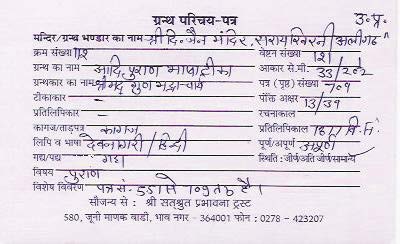 उ.प्र.
ग्रन्थ परिचय-पत्र
मन्दिर/ग्रन्थ भण्डार का नाम श्री दि. जैन मंदिर, सरायखिरनी अलीगढ
क्रम संख्या वेष्टन संख्या
ग्रन्थ का नाम आदि पुराण भाषाटीका आकार से.मी. 33/20२
ग्रन्थकार का नाम श्रीमद् गुणभद्राचार्य पत्र (पृष्ठ) संख्या 709
टीकाकार - पंक्ति अक्षर 13/39
प्रतिलिपिकार - रचनाकाल
कागज/ताड़पत्र कागज प्रतिलिपिकाल
लिपि व भाषा देवनागरी / हिन्दी पूर्ण/अपूर्ण अपूर्ण
गद्य/पद्य गद्य स्थिति : जीर्ण/अति जीर्ण/सामान्य
विषय पुराण
विशेष विवरण पत्र सं. 551 से 709 तक है।
सौजन्य से : श्री सतश्रुत प्रभावना ट्रस्ट
580, जूनी माणक वाडी, भाव नगर - 364001 फोन : 0278 - 423207